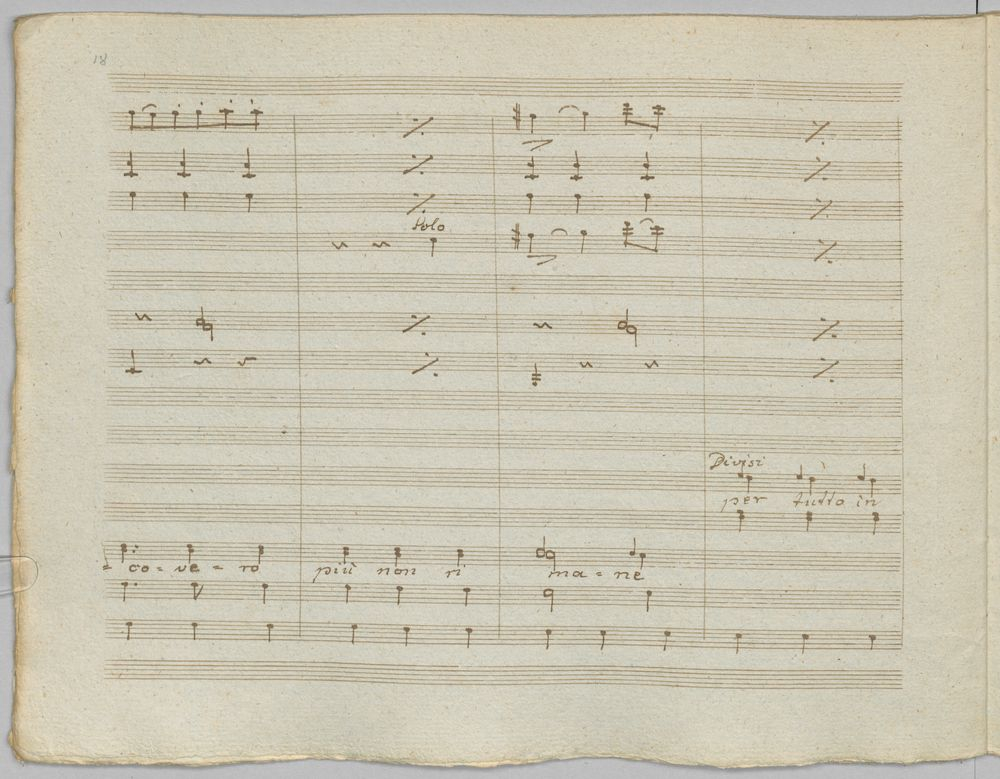 18
Solo
Divisi
per tutto in
= co = ve = ro più non ri ma = ne